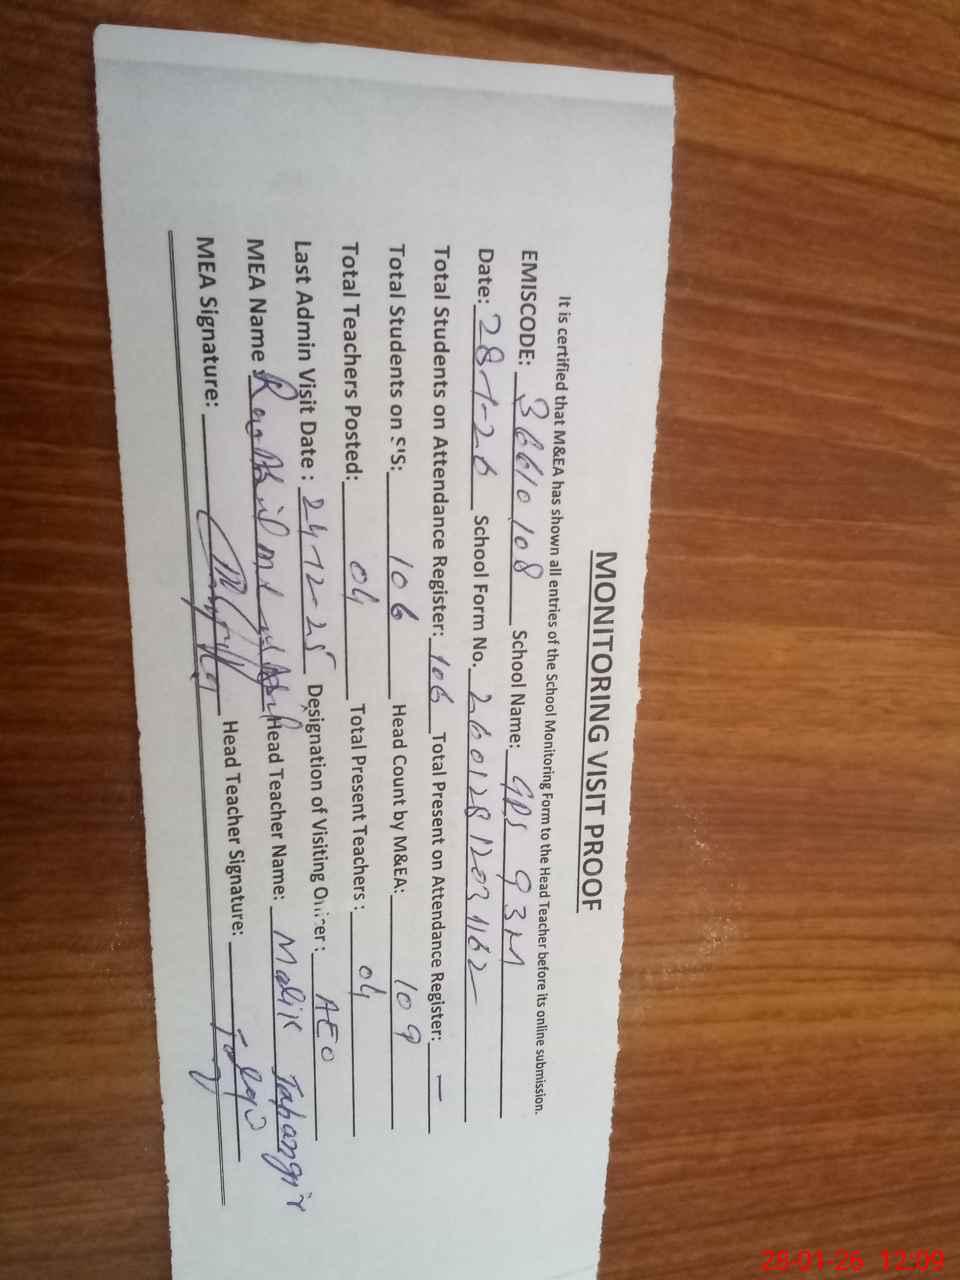 MONITORING VISIT PROOF
It is certified that M&EA has shown all entries of the School Monitoring Form to the Head Teacher before its online submission.
EMISCODE: 36610108 School Name: GPS 93M
Date: 28-1-26 School Form No. 26012812031162
Total Students on Attendance Register: 106 Total Present on Attendance Register: —
Total Students on S'S: 106 Head Count by M&EA: 109
Total Teachers Posted: 04 Total Present Teachers : 04
Last Admin Visit Date : 24-12-25 Designation of Visiting Officer : AEO
MEA Name : Head Teacher Name: Malik Jahangir
MEA Signature: Head Teacher Signature:
28-01-26 12:09